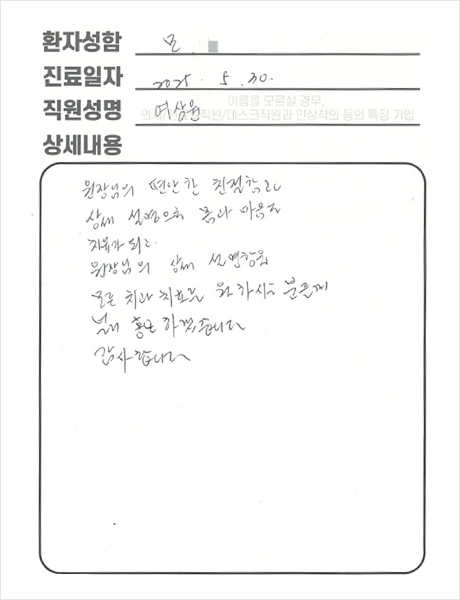 환자성함 모
진료일자 2025. 5. 30.
직원성명 여상원
이름을 모르실 경우,
직원/데스크직원과 인상착의 등의 특징 기입
상세내용
원장님의 편안한 친절함과
상세 설명으로 몸과 마음도
치유가 되고
원장님의 상세 설명함을
모든 치과 치료를 원하시는 분들께
널리 홍보 하겠습니다
감사합니다